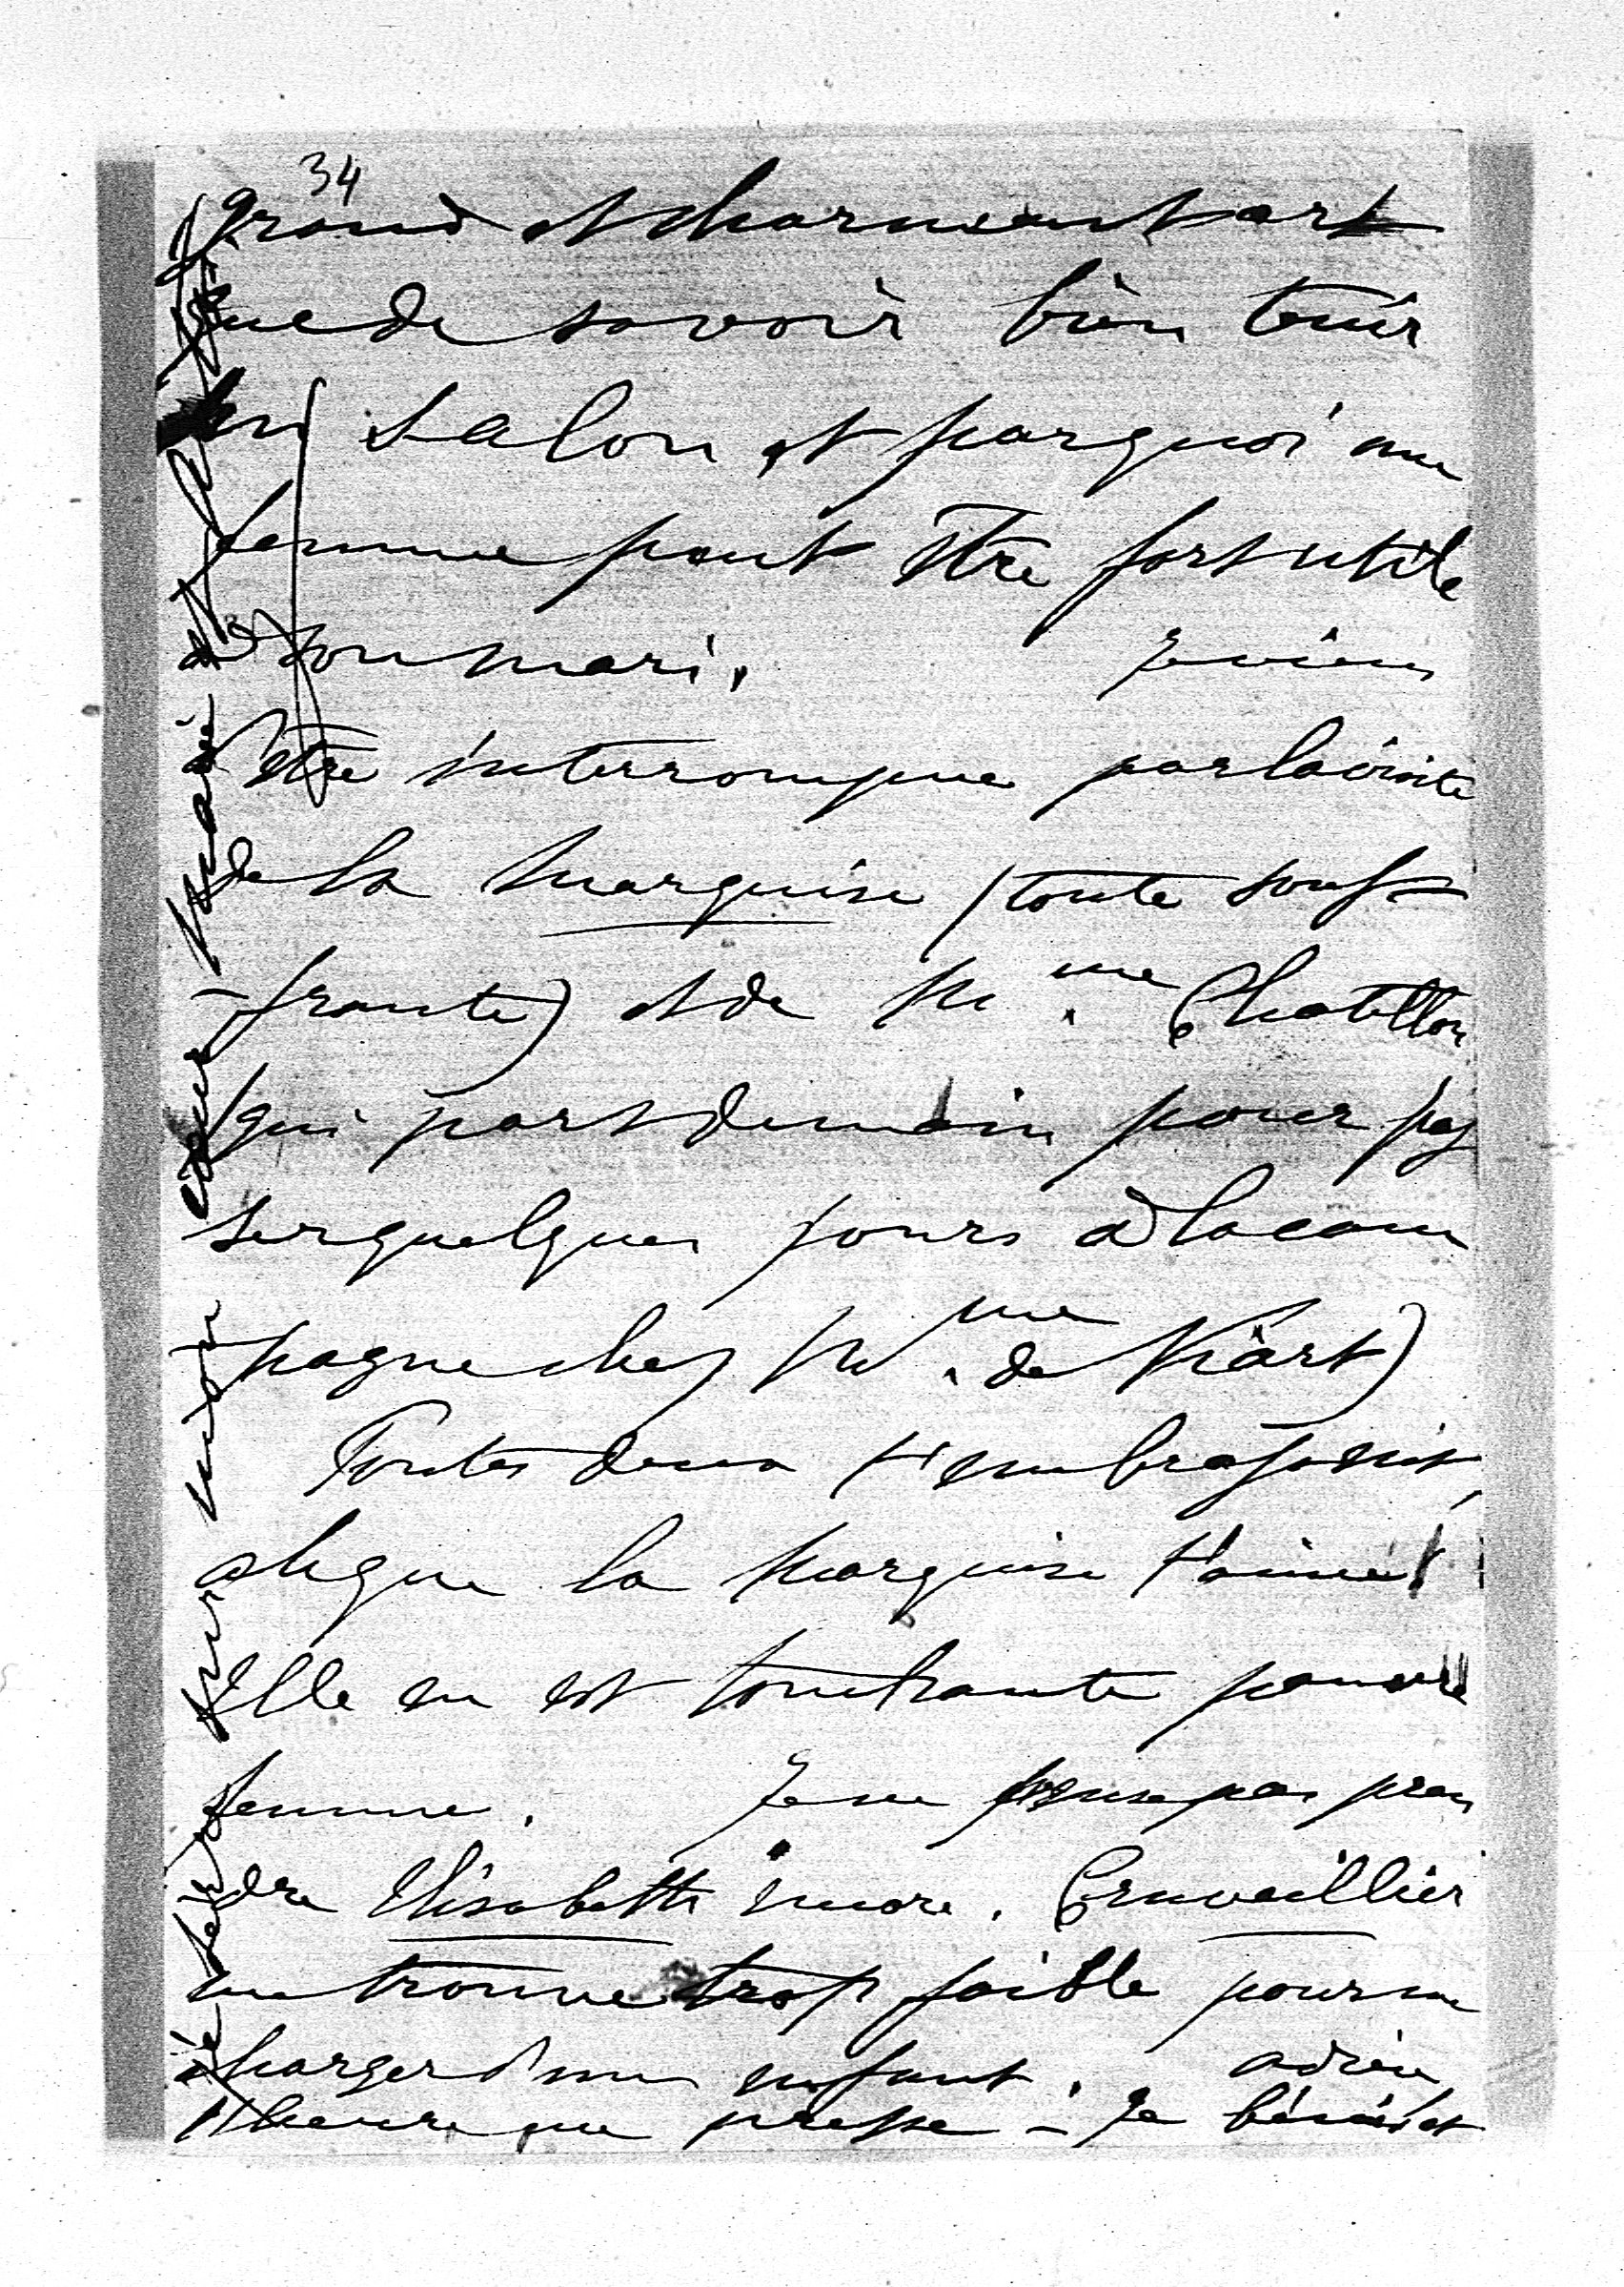 34
grand et charmant art
que de savoir bien tenir
un salon, et parquoi une
femme peut être fort utile
à son mari. Je viens
d'être interrompue par la visite
de la marquise (toute souf-
-frante) et de Mme Chatillon
(qui part demain pour pas
ser quelques jours à la cam
pagne chez Mme de Viart)
Toutes deux t'embrassent,
ah que la marquise t'aime!
Elle en est touchante pauvre
femme. Je ne pense pas pren
dre Elisabeth encore. Cruveillier
me trouve trop faible pour me
charger d'un enfant. adieu
l'heure me presse - Je bénis et